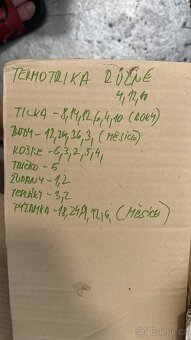 TERMOTRIKA RŮZNÉ
4,12,10
TÍLKA - 8,14,12,6,4,10 (ROKY)
BODY - 12,24,36,3, (MĚSÍCE)
KOŠILE - 6,3,2,5,4,
TRIČKO - 5
ŽUPANY - 1,2
TEPLÁKY - 3,2
PYŽAMKA - 18,24,9,12,6, (MĚSÍCE)
Bazoš.cz